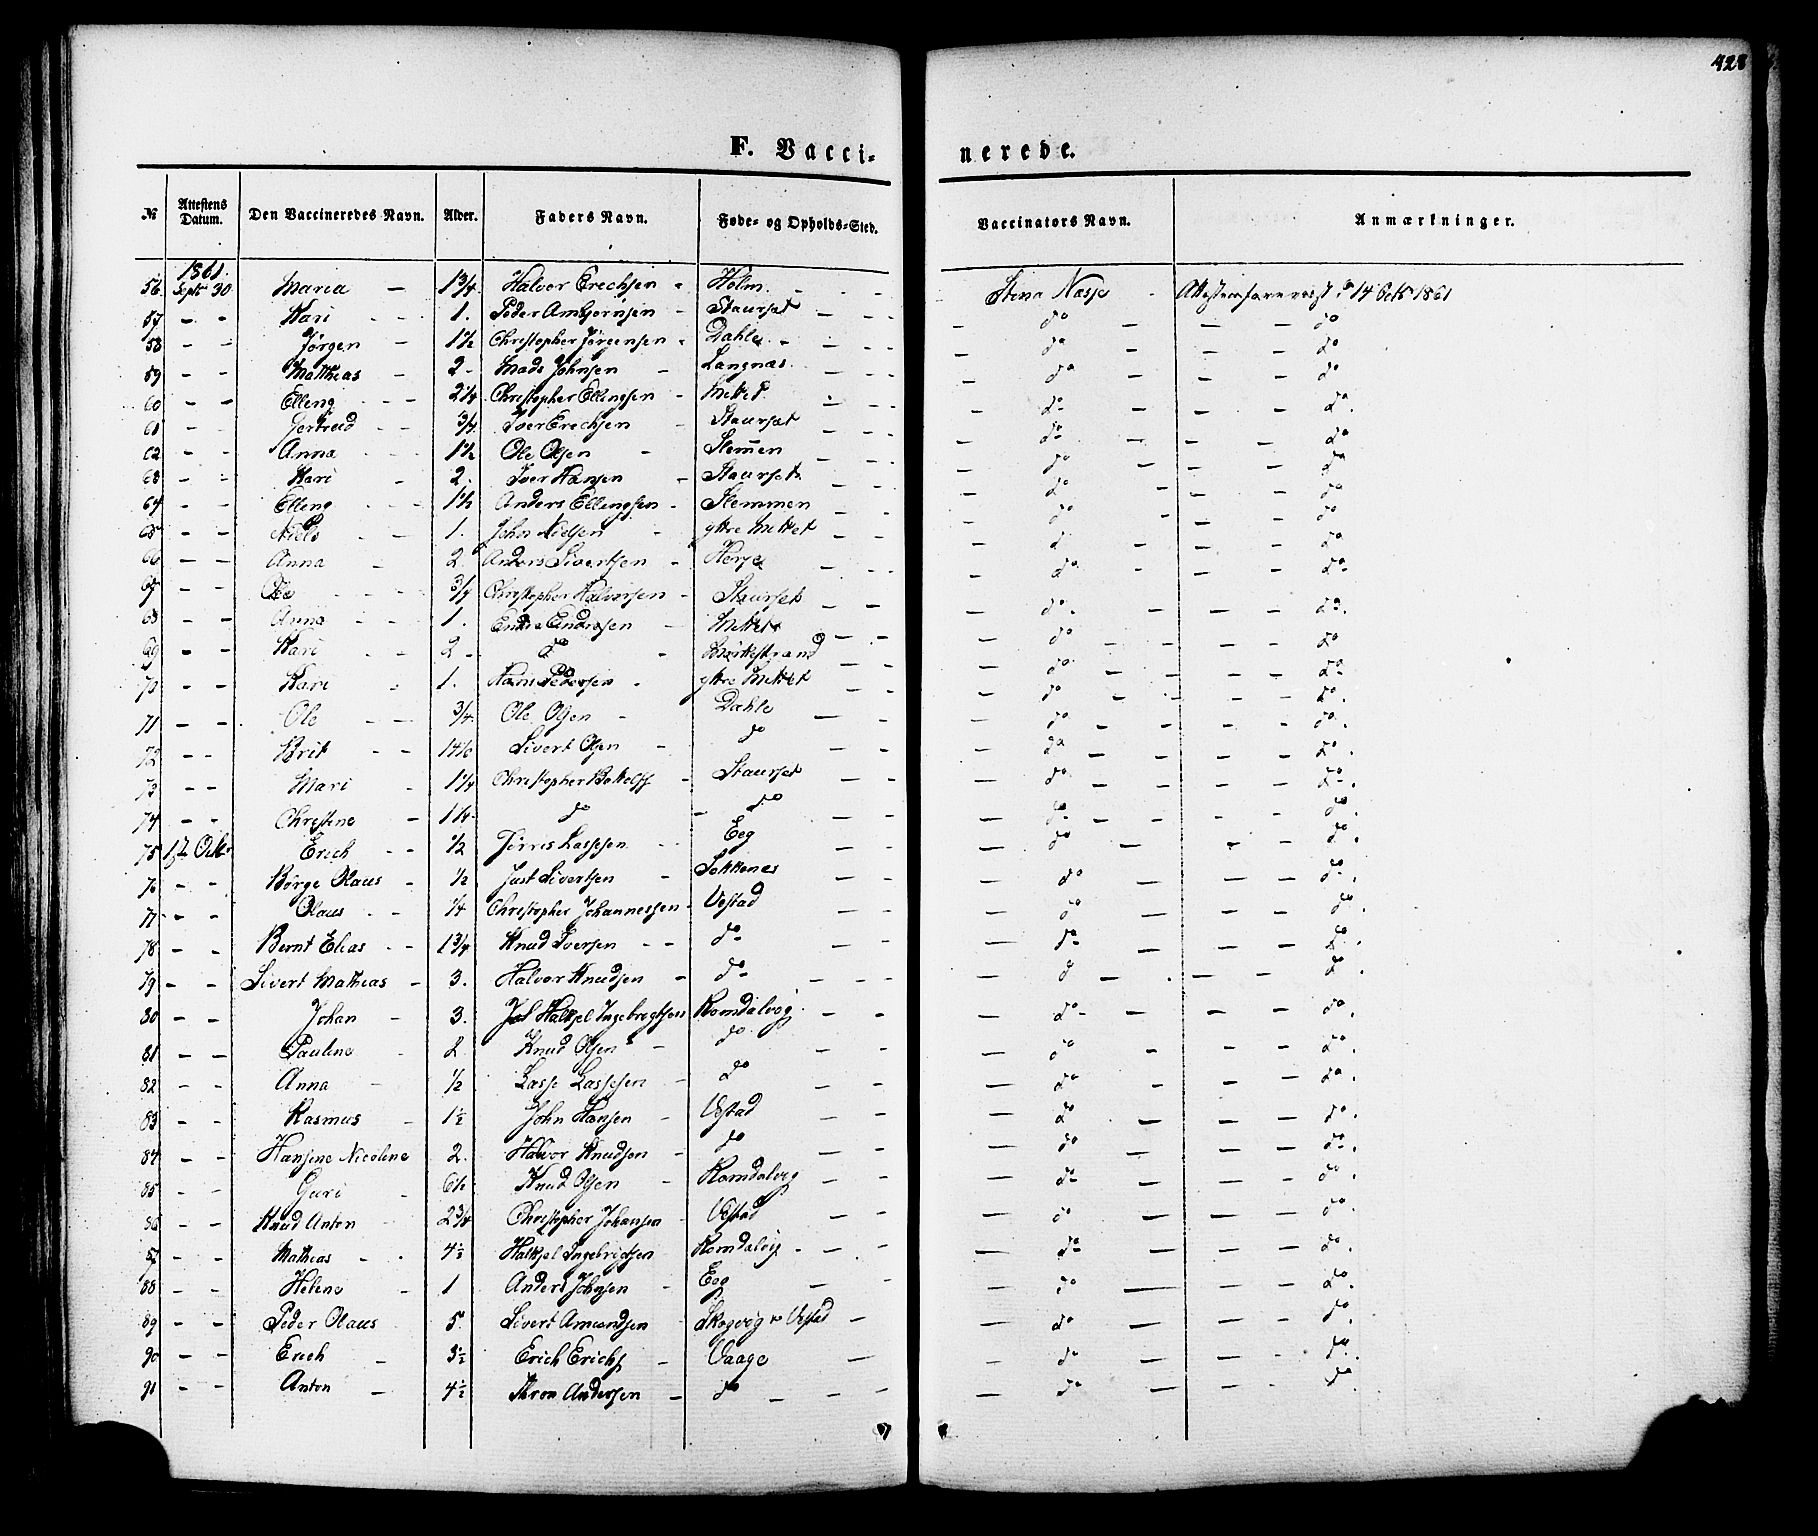 428
F. Vacci- nerede.
№ Attestens Datum. Den Vaccineredes Navn. Alder. Faders Navn. Føde- og Opholds-Sted. Vaccinators Navn. Anmærkninger.
1861.
56. Septr 30 Maria — 1 3/4. Halvor Erechsen - Holm. - - Stina Næsje - 14 Octbr 1861
57 - - Kari - - 1. Peder - Staurset - - - do - - - do
58 - - Jørgen - 1 1/2 Christopher Jørgensen - Dahle - - - do - - - do
59 - - Matthias - 2 - Mads Johnsen - Langnæs - - - do - - - do
60 - - Elleng - - - 2 1/4 Christopher Ellingsen - Mittet - - - do - - - do.
61 - - Gertrud - - 3/4. Iver Erechsen - Staurset - - - do - - - do
62 - - Anna - - - 1 1/2 Ole Olsen - Stem̅en - - - do - - - do
63 - - Kari - 2. Iver Hansen - Staurset - - - do - - - do
64 - - Elleng - - - 1 1/2 Anders Ellengsen - Stemmen - - - do - - - do
65 - - Niels - - 1. John Nielsen - yttre Mittet - - - do - - - do
66 - - Anna - 2. Anders Sivertsen - Herje - - - do - - - do
67 - - Ole - - - 3/4 Christopher Halvorsen - Staurset - - - do. - - - do.
68 - - Anna - - 1. Endre Endresen - Mittet - - - do - - - do
69 - - Kari - - 2 - do - - - - do - - - do
70 - - Kari - 1. Hans Pedersen - yttre Mittet - - - do - - - do.
71 - - Ole - - 3/4. Ole Olsen - Dahle - - - do - - - do.
72 - - Brit - - Sivert Olsen - do - - - do - - - do.
73 - - Mari - 1 1/4 Christopher - Staurset - - - do - - - do.
74 - - Christine - 1 1/4. do - do - - - do - - - do.
75 17 Octbr Erich - - 1/2 Jørris Lassesen - - Eeg - - - do - - - do.
76 - - Børge Olaus - 1/2 Just Sivertsen - Sekkenes - - - do - - - do.
77 - - Olaus - - 1/4 Christopher Johannessen - Vestad - - - do - - - do.
78 - - Bernt Elias - - 1 3/4 Knud Iversen - - do - - - do - - - do.
79 - - Sivert Mathias - 3. Halvor Knudsen - do - - - do - - - do.
80 - - Johan - 3. Halkjel Ingebregtsen Romdalsvig - - - do - - - do.
81 - - Pauline - 2 Knud Olsen - do - - - do - - - do.
82 - - Anna - 1/2 Lasse Lassesen - do - - - do - - - do.
83 - - Rasmus - 1 1/2 John Hansen - Vestad - - - do - - - do.
84 - - Hansine Nicoline 2. Halvor Knudsen - do - - - do - - - do.
85 - - Guri - 6 1/2 Knud Olsen - Romdalvig - - - do - - - do.
86 - - Knud Anton 2 3/4 Christopher Johansen - Vestad - - - do - - - do.
87 - - Mathias - - 4 1/2 Halkjel Ingebrigtsen - Romdalvig - - - do - - - do.
88 - - Helene - 1 Anders Johnsen - Eeg - - - do - - - do.
89 - - Peder Olaus 5 Sivert Amundsen - Skogvig v Vestad - - do - - - do.
90 - - Erich - 3 1/2 Erich Erichs - Vaage - - do - - - do.
91 - - Anton - 4 1/2 Thron Andersen - do - - - - do - - - do.